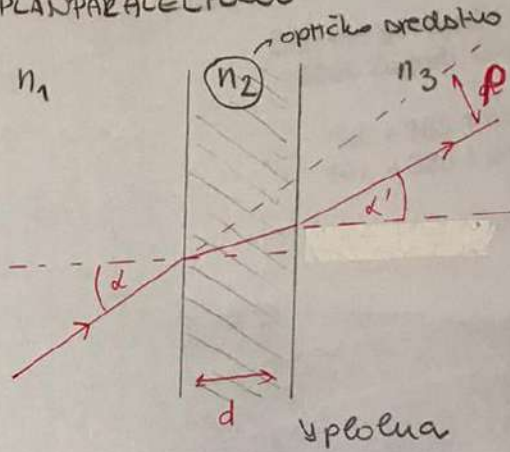 PLANPARALEL
optičko sredstvo
n₁
n₂
n₃
p
α'
α
d